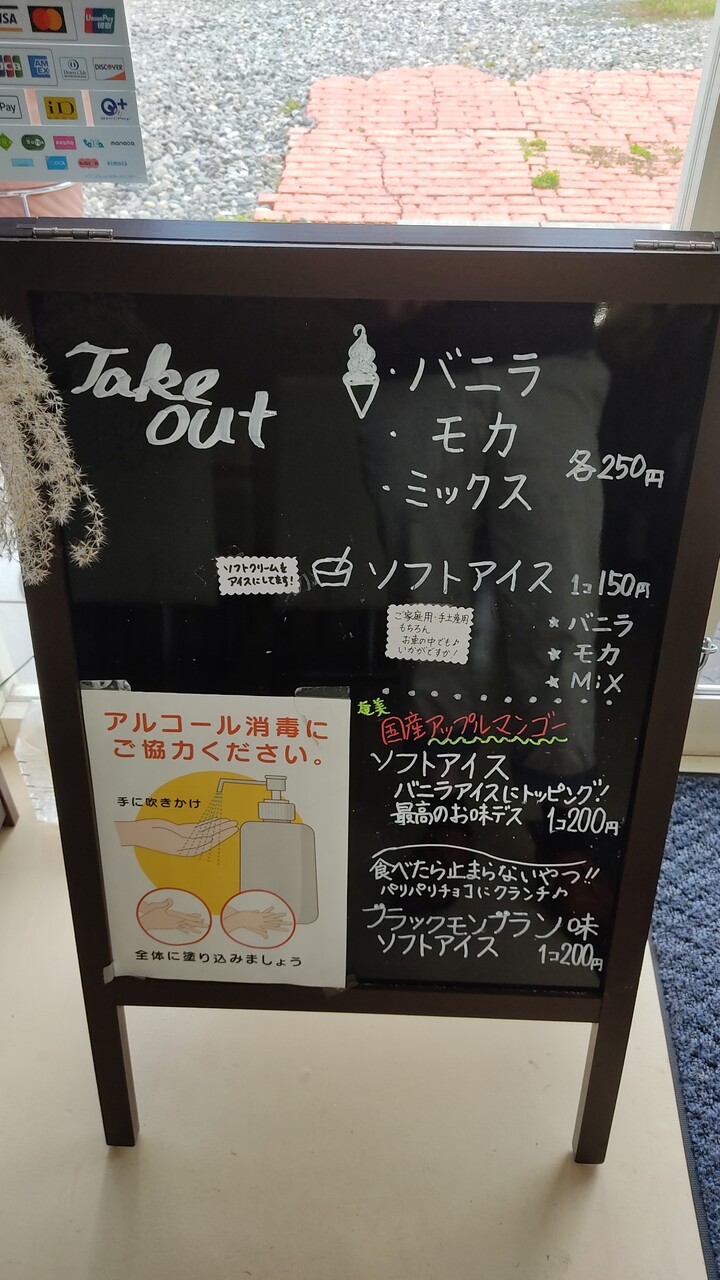 VISA
UnionPay
JCB
AMEX
Diners Club
DISCOVER
Pay
iD
manaca
nimoca
Take out
・バニラ
・モカ
・ミックス
各250円
ソフトクリームを
アイスにしてます!
ソフトアイス 1コ150円
ご家庭用・手土産用
もちろん
お車の中でも♪
いかがですか!
★バニラ
★モカ
★MiX
奄美
国産アップルマンゴー
ソフトアイス
バニラアイスにトッピング!
最高のお味デス 1コ200円
食べたら止まらないやつ!!
パリパリチョコにクランチ♪
ブラックモンブラン味
ソフトアイス 1コ200円
アルコール消毒に
ご協力ください。
手に吹きかけ
全体に塗り込みましょう